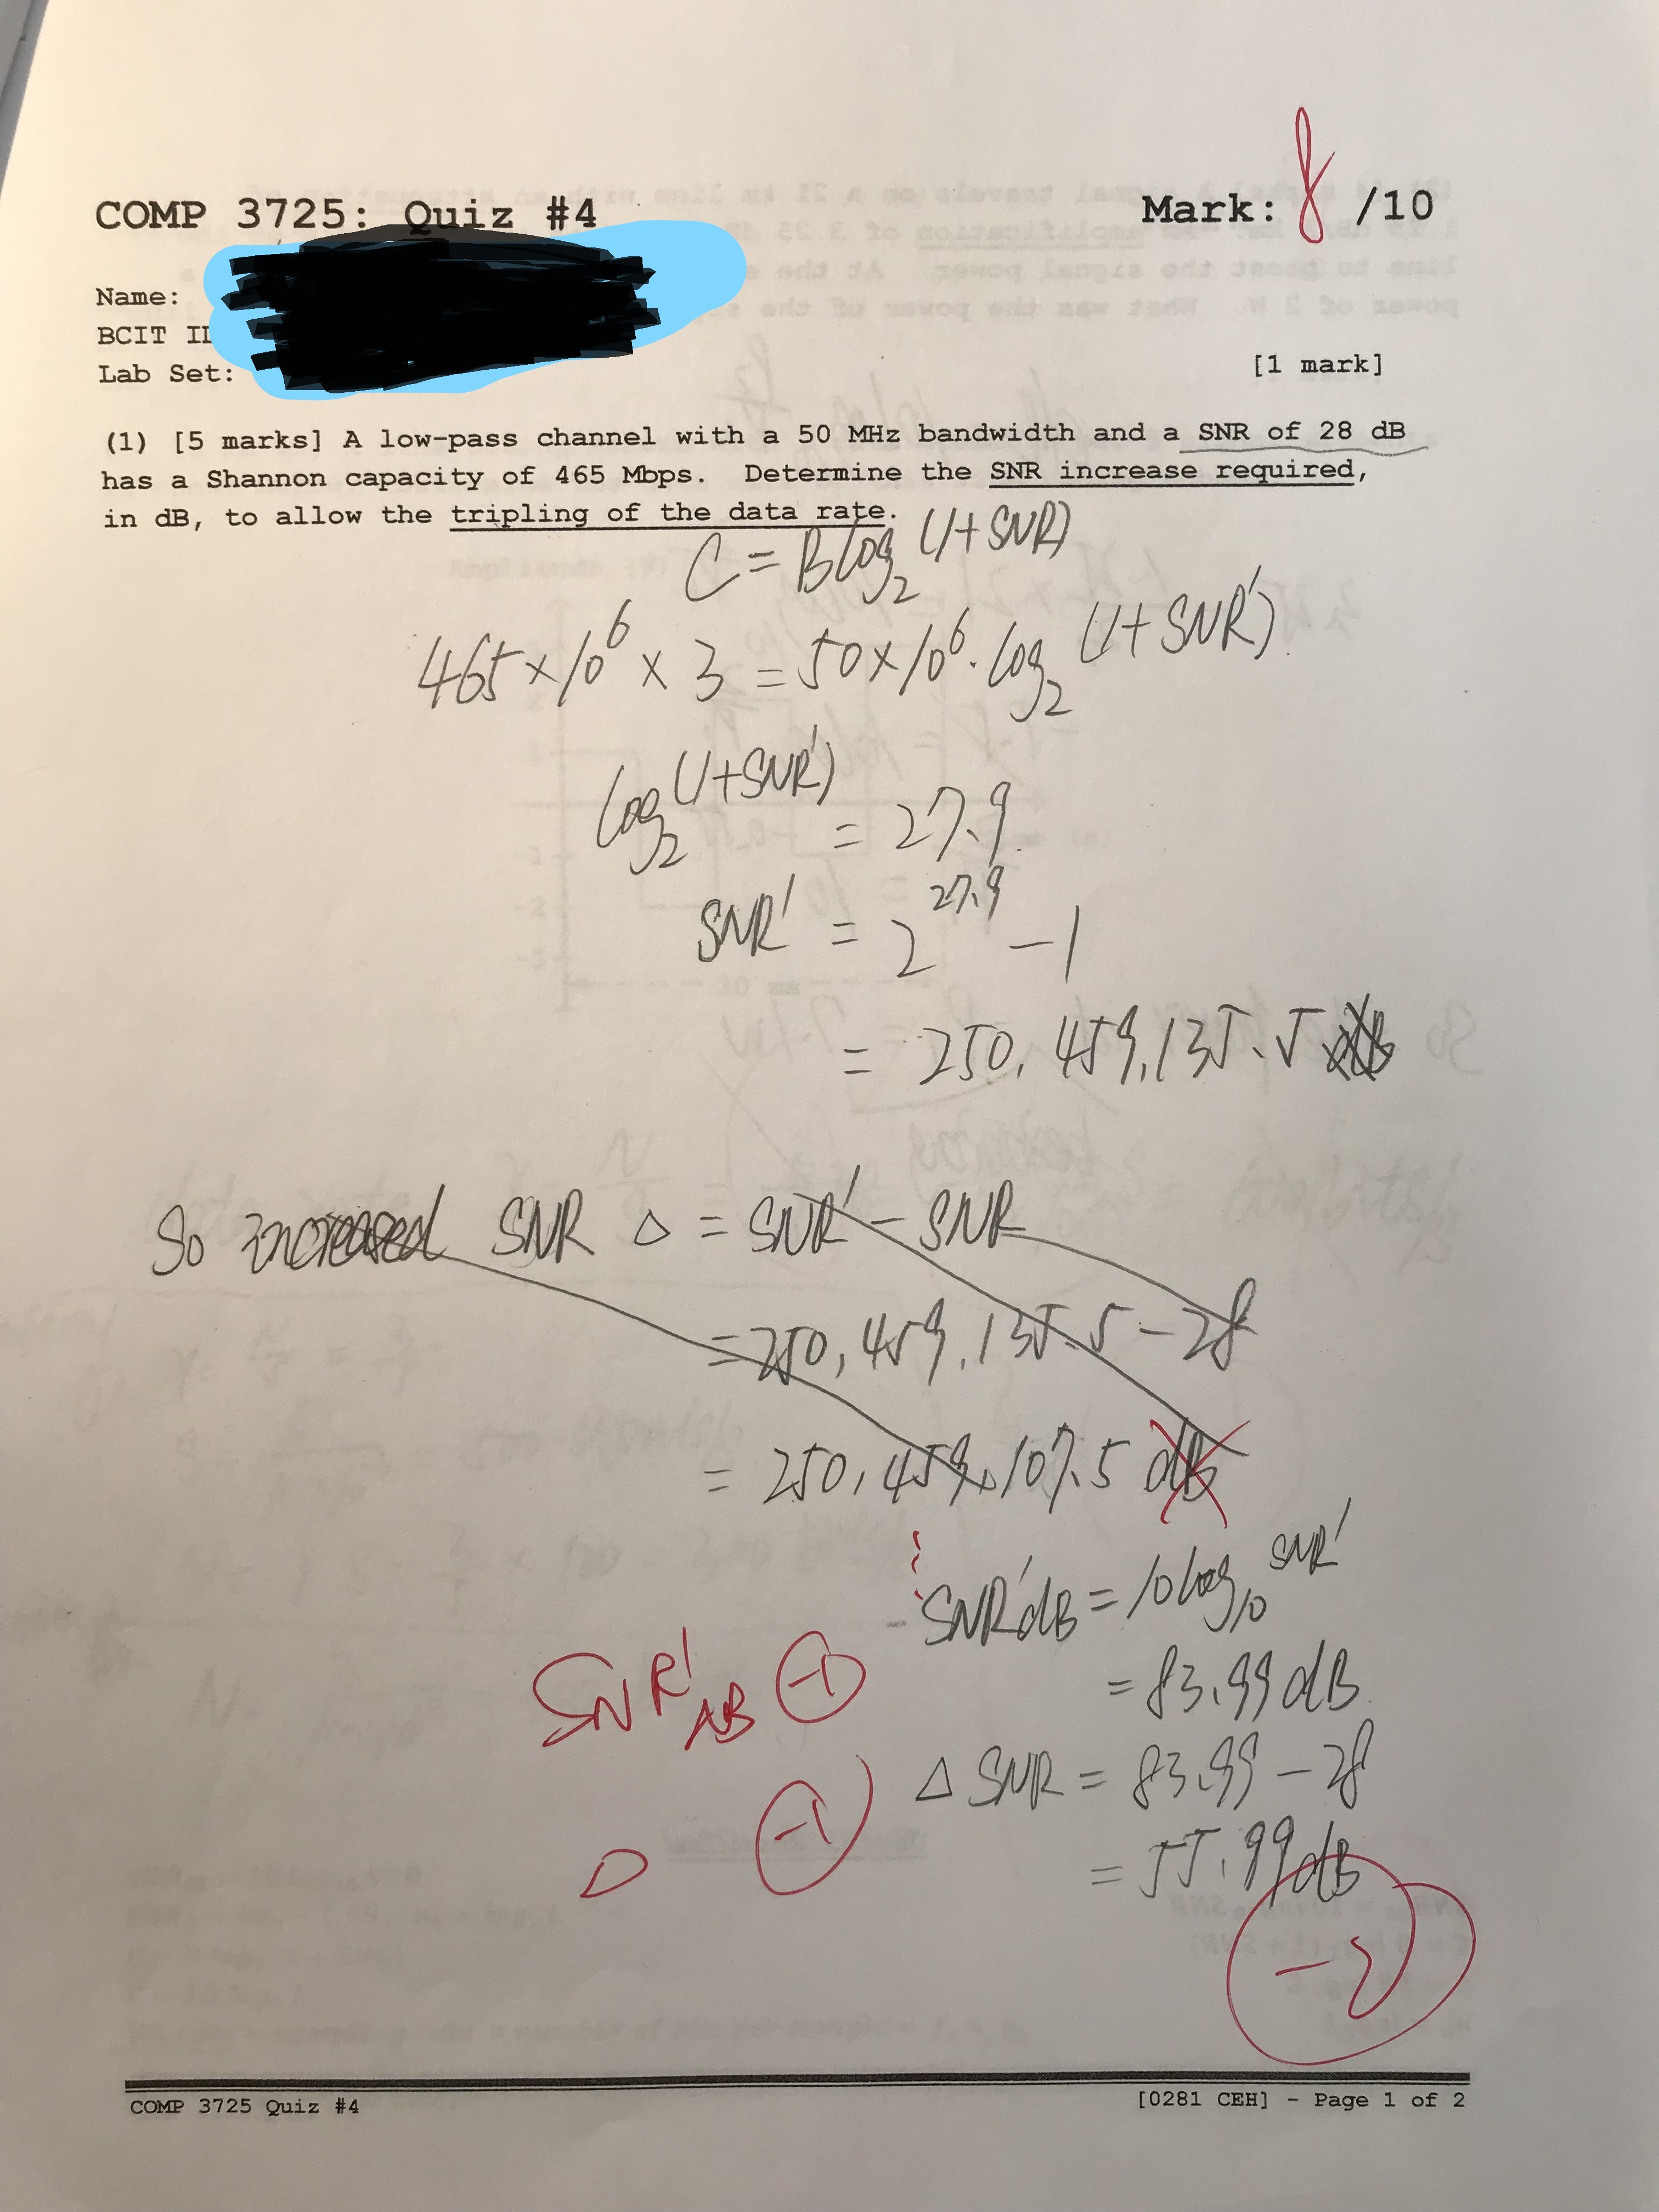 COMP 3725: Quiz #4
Mark: 8 /10
Name:
BCIT ID
Lab Set:
[1 mark]
(1) [5 marks] A low-pass channel with a 50 MHz bandwidth and a SNR of 28 dB
has a Shannon capacity of 465 Mbps. Determine the SNR increase required,
in dB, to allow the tripling of the data rate.
C = B log₂ (1+SNR)
465×10⁶ × 3 = 50×10⁶ · log₂ (1+SNR')
log₂ (1+SNR') = 27.9
SNR' = 2^27.9 - 1
= 250,459,135.5 dB
So increased SNR △ = SNR' - SNR
= 250,459,135.5 - 28
= 250,459,107.5 dB
SNR'dB = 10 log₁₀ SNR'
= 83.99 dB
SNR'dB -1
△ SNR = 83.99 - 28
△ -1
= 55.99 dB
-2
COMP 3725 Quiz #4
[0281 CEH] - Page 1 of 2